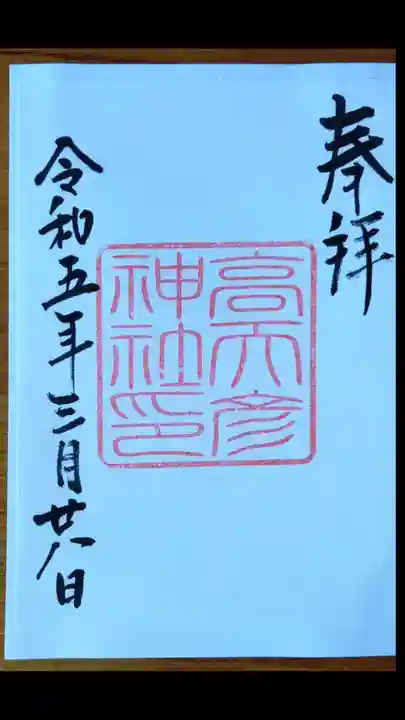 奉拝
高天彦
神社印
令和五年三月廿八日